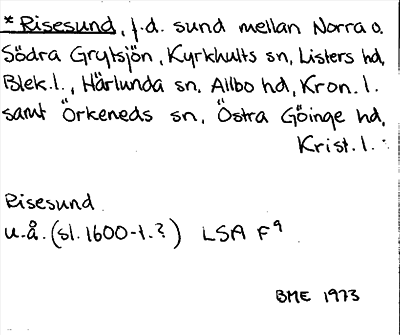 * Risesund, f.d. sund mellan Norra o.
Södra Grytsjön, Kyrkhults sn, Listers hd,
Blek.l., Härlunda sn, Allbo hd, Kron.l.
samt Örkeneds sn, Östra Göinge hd,
Krist.l.
Risesund
u.å. (sl. 1600-t.?) LSA F9
BME 1973